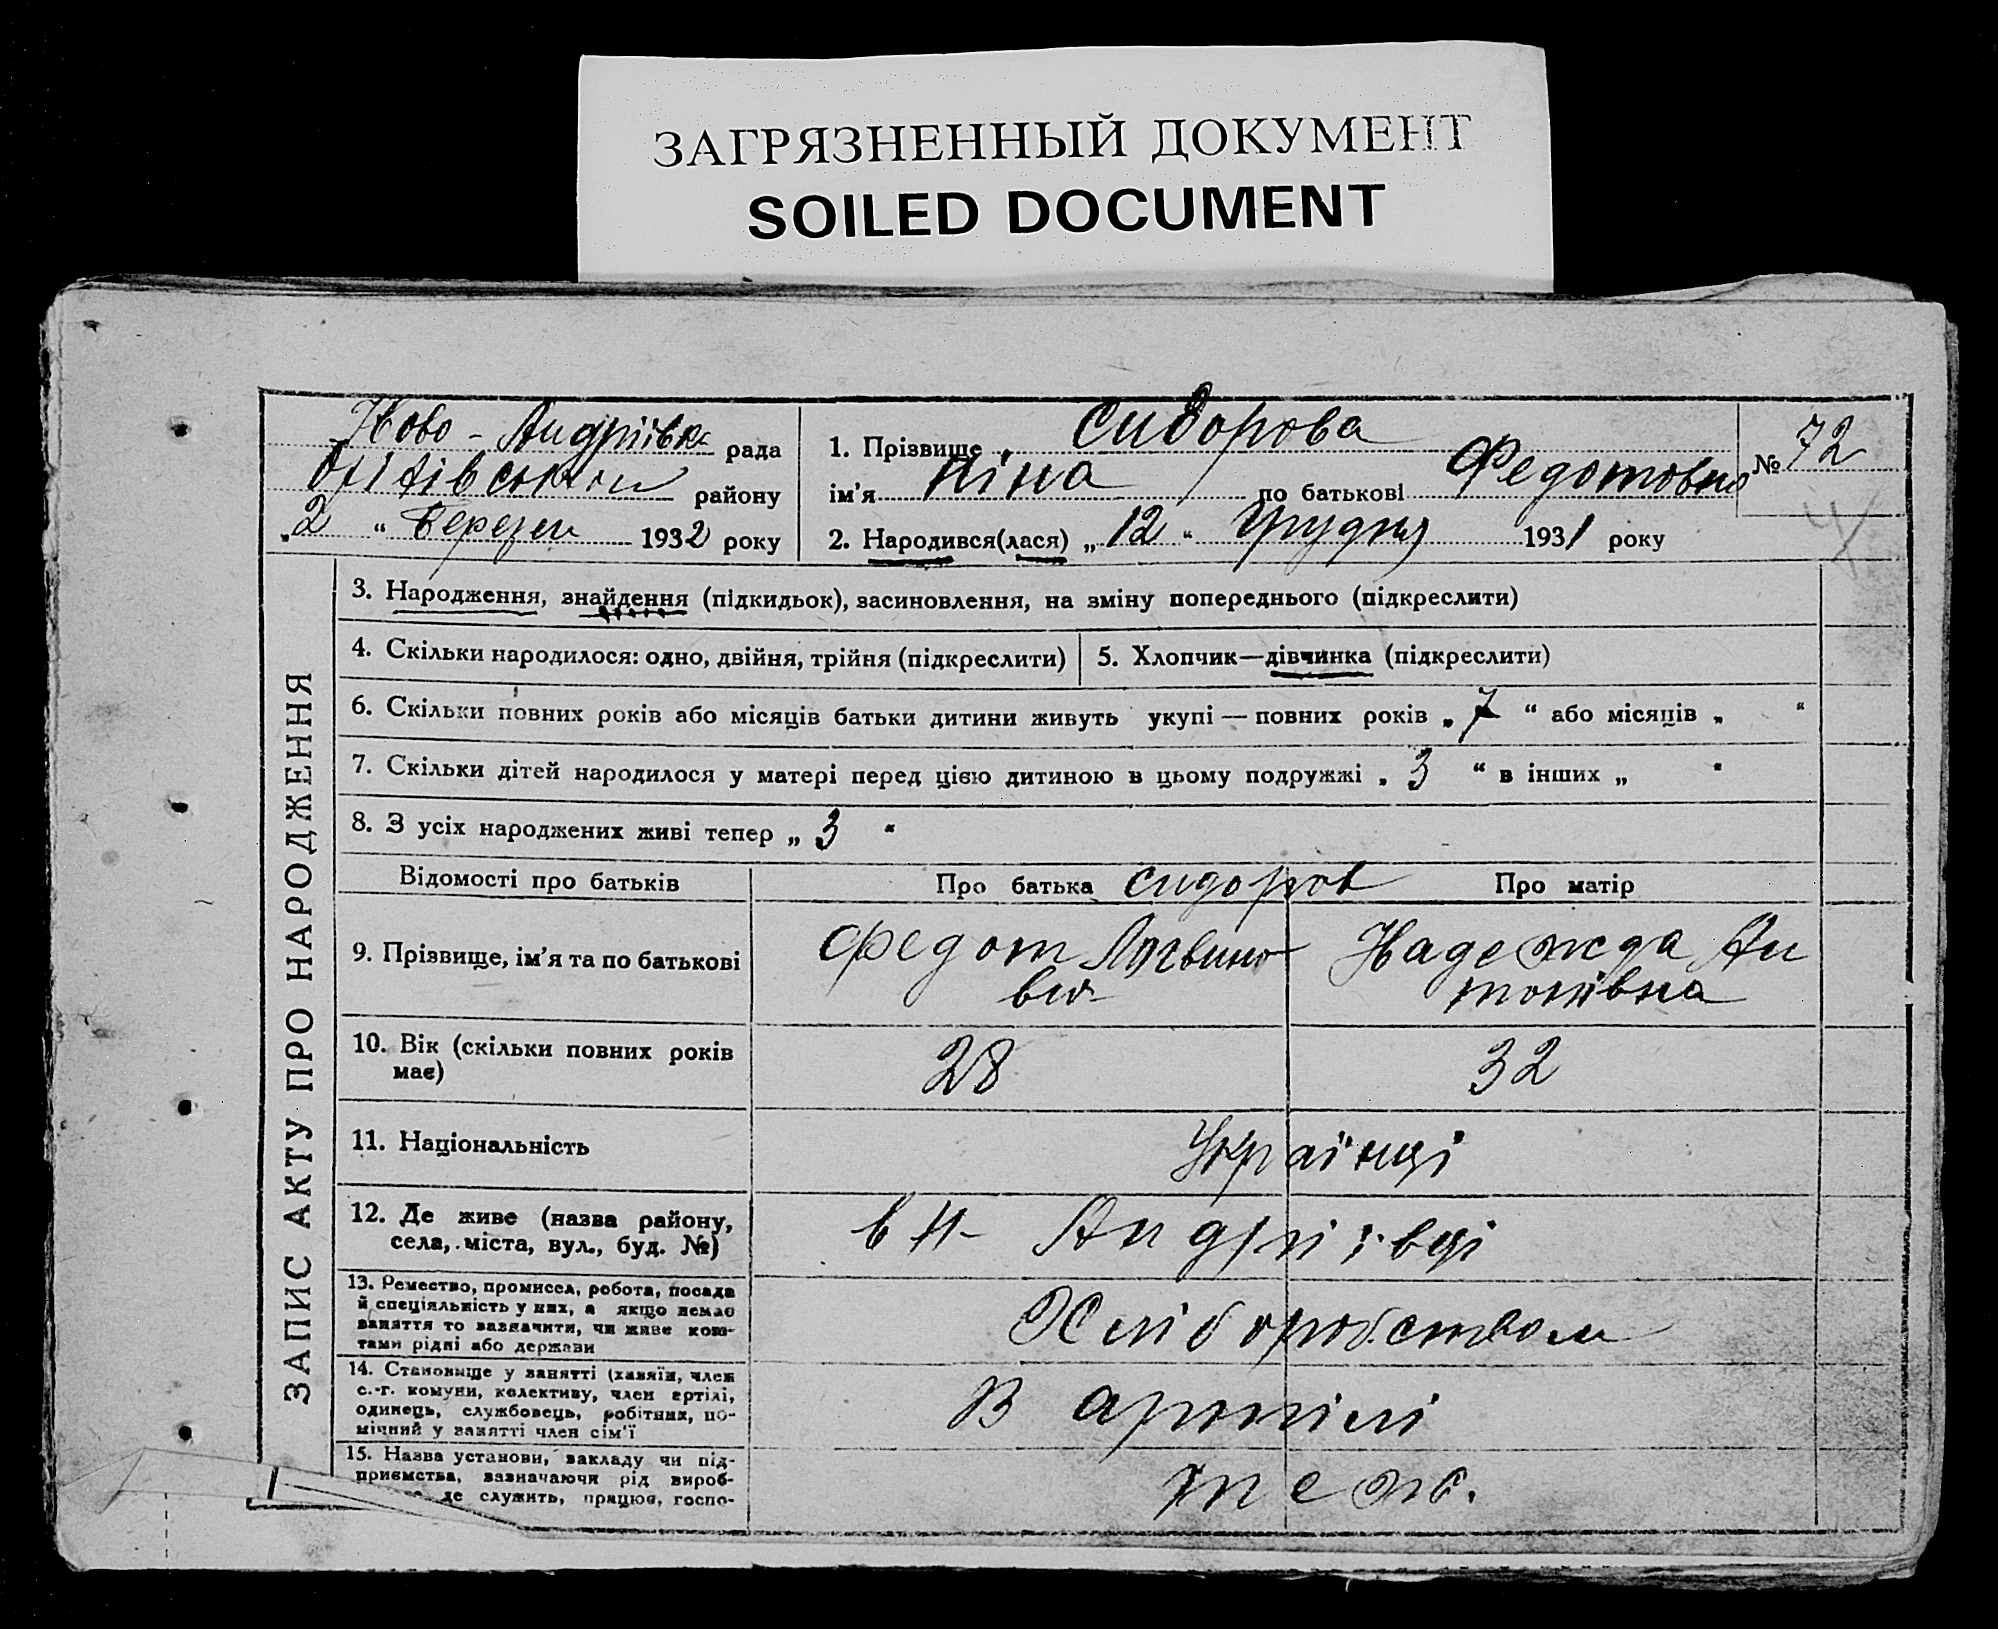 ЗАГРЯЗНЕННЫЙ ДОКУМЕНТ
SOILED DOCUMENT
ЗАПИС АКТУ ПРО НАРОДЖЕННЯ
Ново-Андріївка рада
району
„2“ Березен 1932 року
1. Прізвище Сидорова
ім'я Ніна по батькові Федотовна
2. Народився(лася) „12“ Грудня 1931 року
№ 72
3. Народження, знайдення (підкидьок), засиновлення, на зміну попереднього (підкреслити)
4. Скільки народилося: одно, двійня, трійня (підкреслити)
5. Хлопчик—дівчинка (підкреслити)
6. Скільки повних років або місяців батьки дитини живуть укупі — повних років „7“ або місяців „ “
7. Скільки дітей народилося у матері перед цією дитиною в цьому подружжі „3“ в інших „ “
8. З усіх народжених живі тепер „3“
Відомості про батьків
Про батька Сидоров
Про матір
9. Прізвище, ім'я та по батькові
Федот Логвино
вич
Надежда Ан
тонівна
10. Вік (скільки повних років
має)
28
32
11. Національність
Українці
12. Де живе (назва району,
села, міста, вул., буд. №)
в Н-Андріївці
13. Ремество, промисел, робота, посада
й спеціяльність у них, а якщо немає
заняття то зазначити, чи живе кош-
тами рідні або держави
Хліборобством
14. Становище у занятті (хазяїн, член
с.-г. комуни, колективу, член артілі,
одинець, службовець, робітник, по-
мічний у занятті член сім'ї
В артілі
15. Назва установи, закладу чи під-
приємства, зазначаючи рід вироб-
де служить, працює, госпо-
теж.